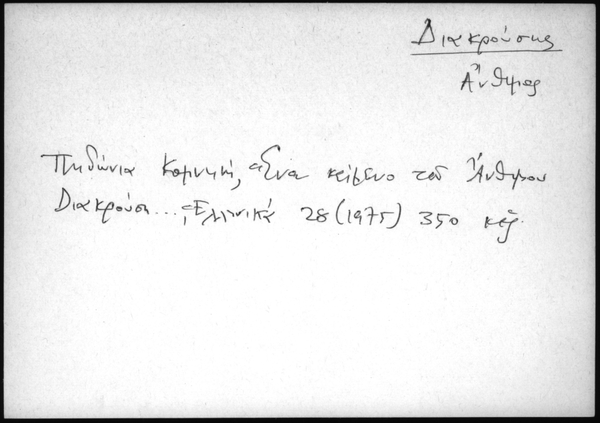 Διακρούσης
Ἄνθιμος
Πηδώνια Κομνηνή, Ἕνα κείμενο τοῦ Ἄνθιμου
Διακρούση..., Ἑλληνικά 28 (1975) 350 κἑξ.